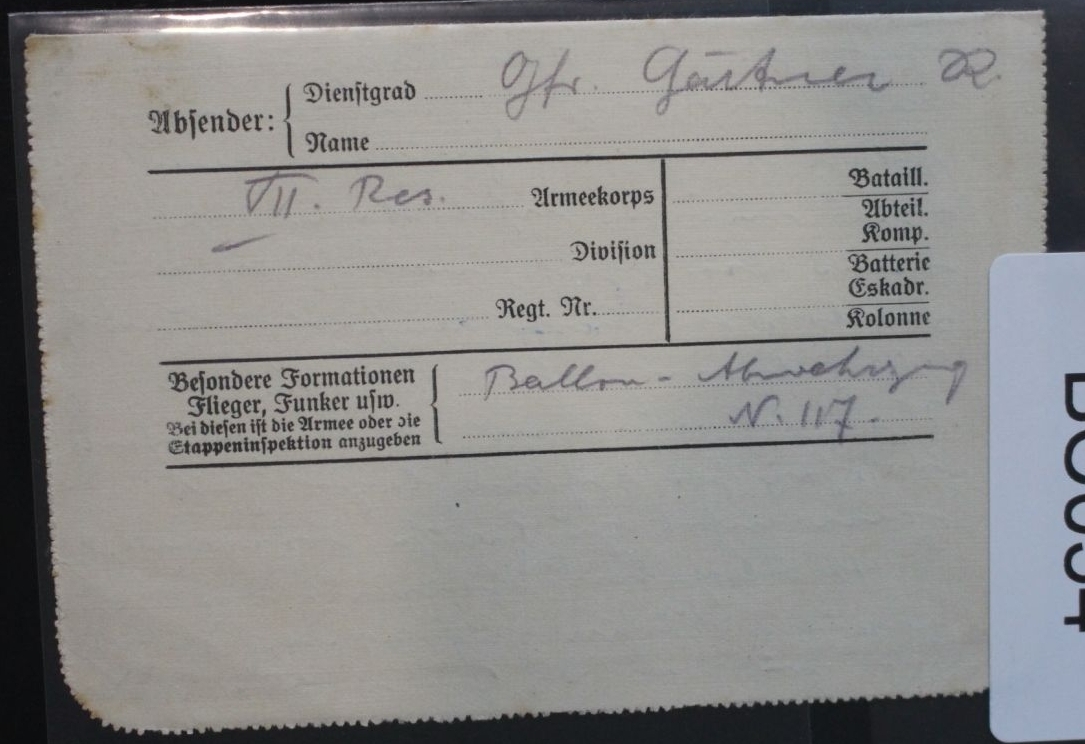 Absender:
Dienstgrad Gfr. Gärtner R.
Name
VII. Res. Armeekorps
Division
Regt. Nr.
Bataill.
Abteil.
Komp.
Batterie
Eskadr.
Kolonne
Besondere Formationen
Flieger, Funker usw.
Bei diesen ist die Armee oder die
Etappeninspektion anzugeben
Ballon - Abwehrzug
N. 117.